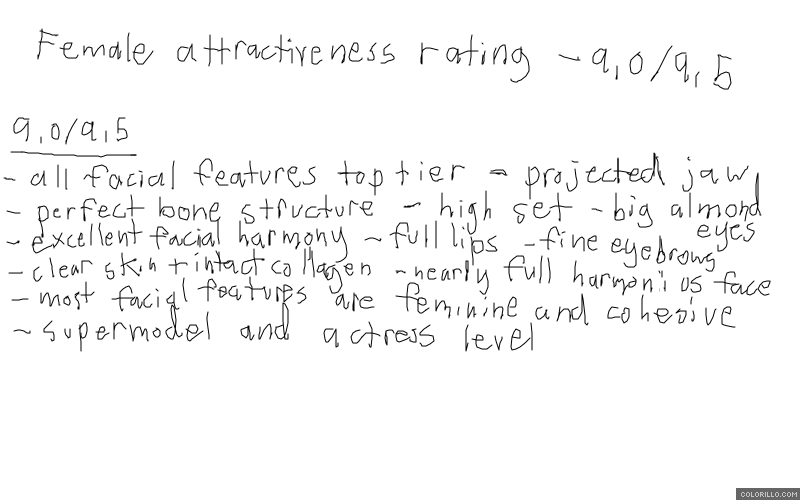 Female attractiveness rating - 9,0/9,5
9,0/9,5
- all facial features top tier - projected jaw,
- perfect bone structure - high set - big almond eyes
- excellent facial harmony - full lips - fine eyebrows
- clear skin + intact collagen - nearly full harmonious face
- most facial features are feminine and cohesive
- supermodel and actress level
COLORILLO.COM